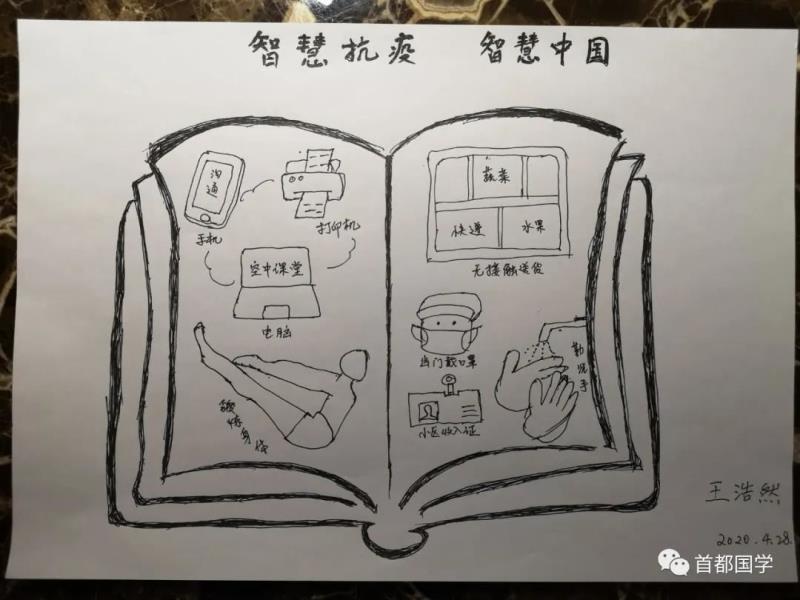 智慧抗疫 智慧中国
沟
通
手机
打印机
空中课堂
电脑
锻炼身体
蔬菜
快递
水果
无接触送货
出门戴口罩
勤洗手
小区出入证
王浩然
2020.4.28.
首都国学